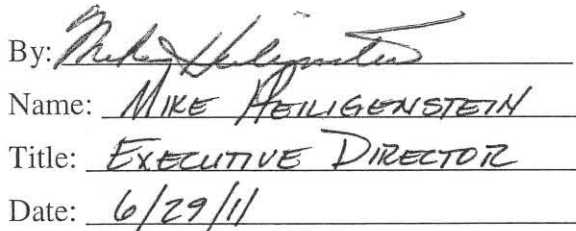 By: Mike Heiligenstein
Name: MIKE HEILIGENSTEIN
Title: EXECUTIVE DIRECTOR
Date: 6/29/11